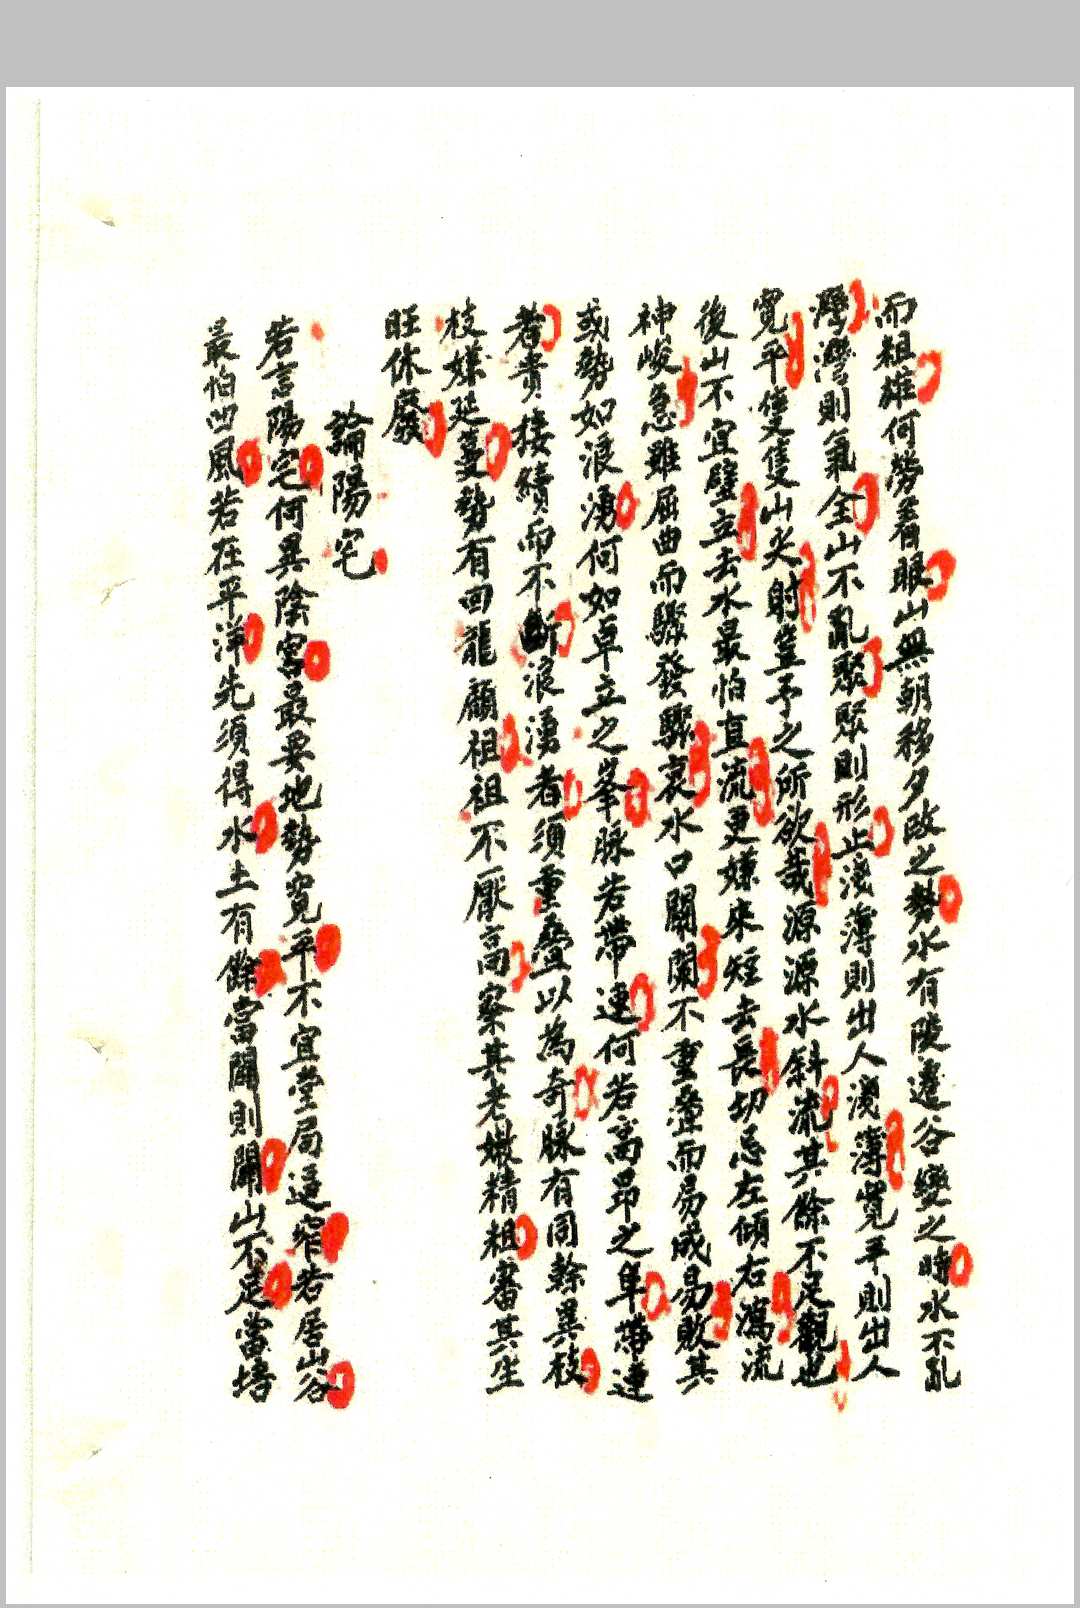 而祖雄何勞着眼山無朝移夕改之勢水有陵遷谷變之時水不乱
灣灣則氣全山不亂聚聚則形止淺薄則出人淺薄寬平則出人
寬平隻隻山尖射豈予之所欲哉源源水斜流其餘不足觀也
後山不宜壁立去水最怕直流更嫌來短去長切忌左傾右瀉流
神峻急雖屈曲而驟發驟衰水口關闌不重疊而易成易敗其
或勢如浪湧何如卓立之峯脉若帶連何若高昂之阜帶連
者貴接續而不斷浪湧者須重疊以為奇脉有同榦異枝
枝嫌延蔓勢有回龍顧祖祖不厭高察其老嫩精粗審其生
旺休廢
論陽宅
若言陽宅何異陰宮最要地勢寬平不宜堂局逼窄若居山谷
最怕凹風若在平洋先須得水土有餘當闢則闢山不足當培